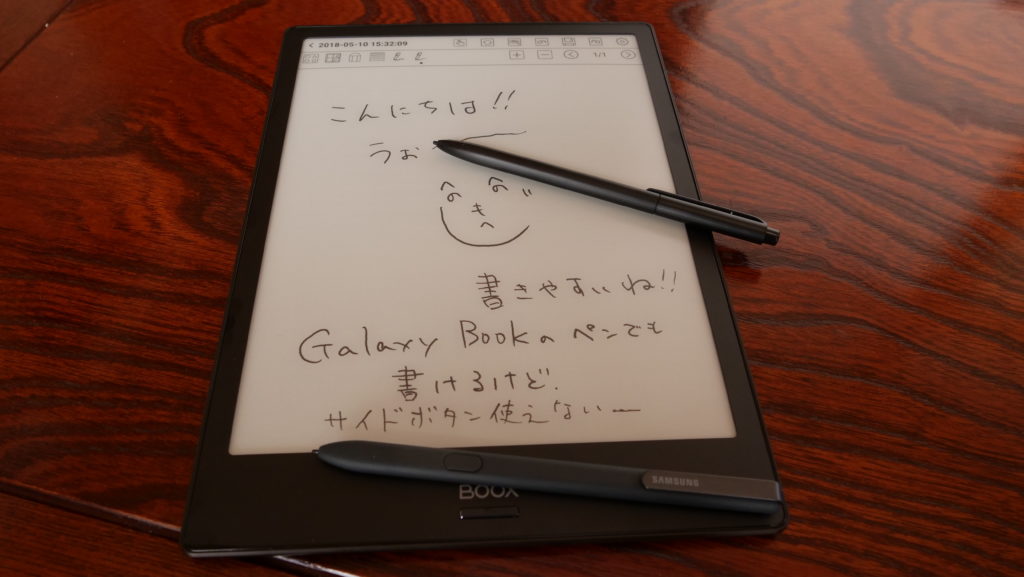 2018-05-10 15:32:09
1/1
こんにちは!!
うお
へ へ
の の〃
も
へ
し
書きやすいね!!
Galaxy Bookのペンでも
書けるけど.
サイドボタン使えないー
SAMSUNG
BOOX